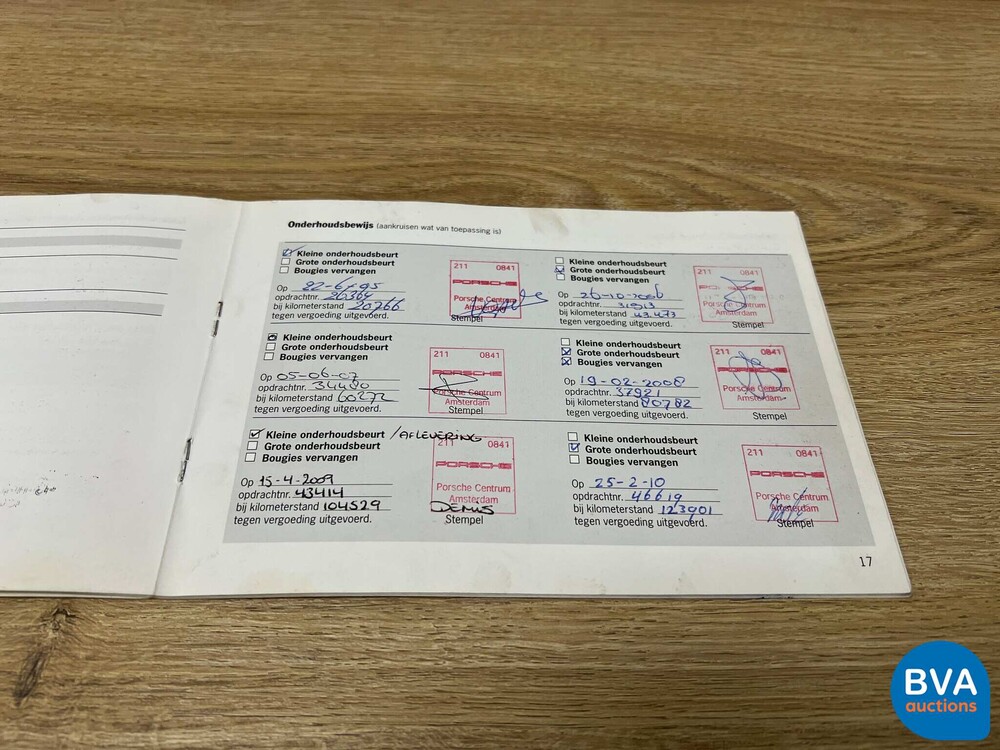 Onderhoudsbewijs (aankruisen wat van toepassing is)
Kleine onderhoudsbeurt
Grote onderhoudsbeurt
Bougies vervangen
Op 22-6-05
opdrachtnr. 26364
bij kilometerstand 20766
tegen vergoeding uitgevoerd.
211 0841
PORSCHE
Porsche Centrum
Amsterdam
Stempel
Kleine onderhoudsbeurt
Grote onderhoudsbeurt
Bougies vervangen
Op 26-10-2006
opdrachtnr. 31913
bij kilometerstand 43.473
tegen vergoeding uitgevoerd.
211 0841
PORSCHE
Porsche Centrum
Amsterdam
Stempel
Kleine onderhoudsbeurt
Grote onderhoudsbeurt
Bougies vervangen
Op 05-06-07
opdrachtnr. 34480
bij kilometerstand 60272
tegen vergoeding uitgevoerd.
211 0841
PORSCHE
Porsche Centrum
Amsterdam
Stempel
Kleine onderhoudsbeurt
Grote onderhoudsbeurt
Bougies vervangen
Op 19-02-2008
opdrachtnr. 37921
bij kilometerstand 80782
tegen vergoeding uitgevoerd.
211 0841
PORSCHE
Porsche Centrum
Amsterdam
Stempel
Kleine onderhoudsbeurt /AFLEVERING
Grote onderhoudsbeurt
Bougies vervangen
Op 15-4-2009
opdrachtnr. 43414
bij kilometerstand 104529
tegen vergoeding uitgevoerd.
211 0841
PORSCHE
Porsche Centrum
Amsterdam
DENIS
Stempel
Kleine onderhoudsbeurt
Grote onderhoudsbeurt
Bougies vervangen
Op 25-2-10
opdrachtnr. 46619
bij kilometerstand 123901
tegen vergoeding uitgevoerd.
211 0841
PORSCHE
Porsche Centrum
Amsterdam
Stempel
17
BVA
auctions